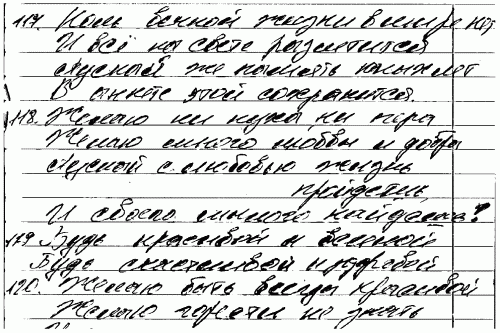 117. Коль вечной жизни в мире нет
И всё на свете разлетится
Пускай же память юных лет
В анкете этой сохранится.
118. Желаю ни пуха, ни пера
Желаю много любви и добра
Пускай с любовью жизнь
пройдешь,
И своего милого найдешь!
119 Будь красивой и весёлой
Будь счастливой и здоровой
120. Желаю быть всегда красивой
Желаю горести не знать